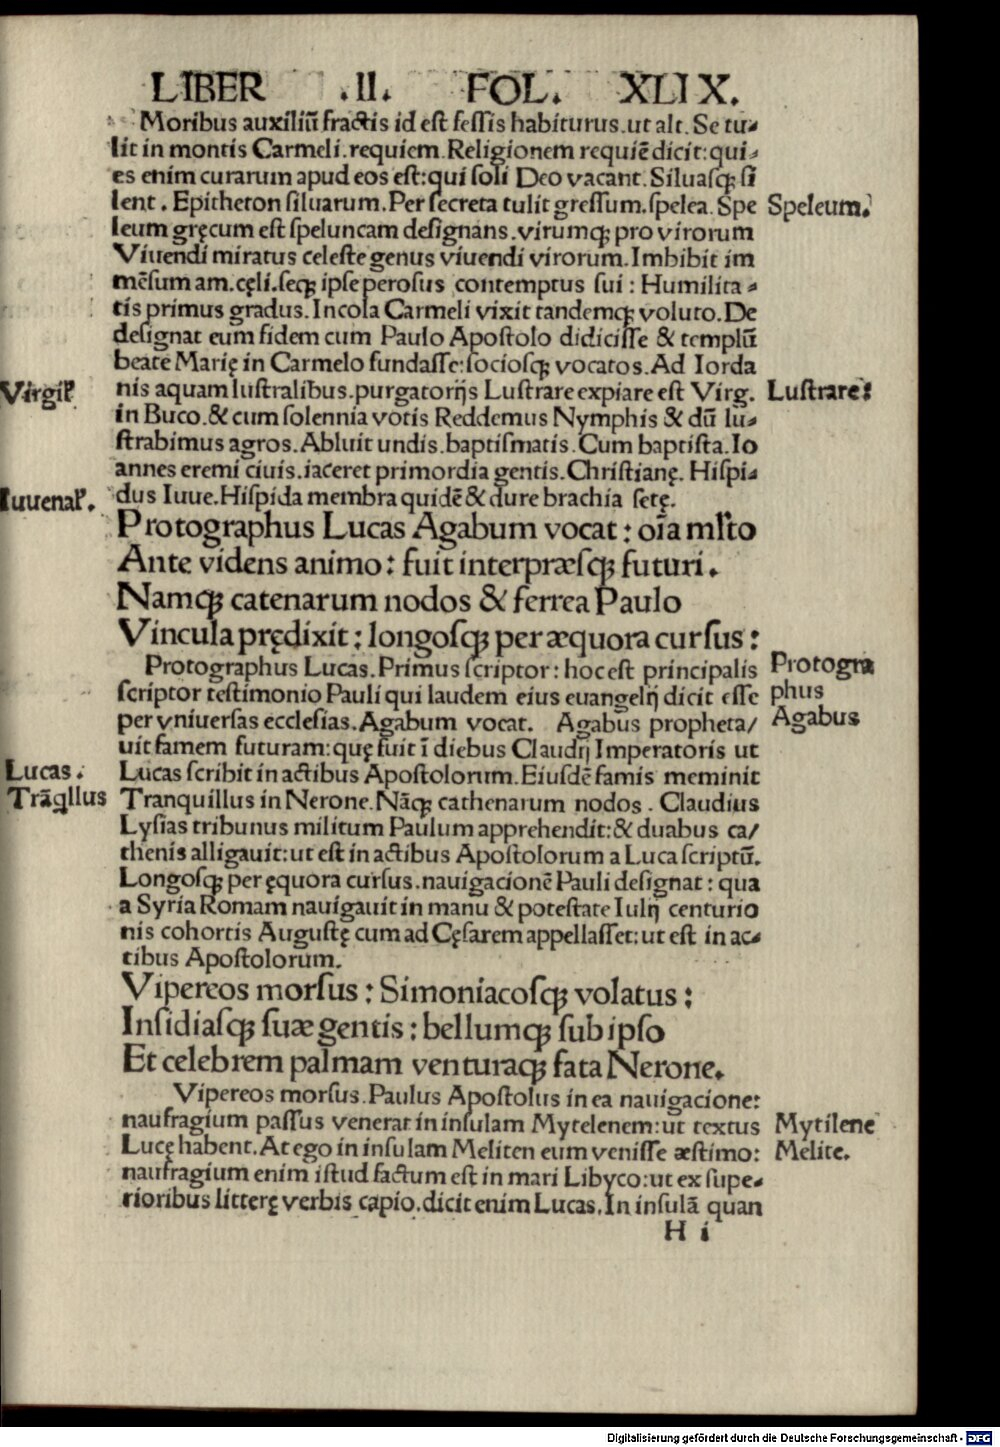 LIBER .II. FOL. XLIX.
Moribus auxiliū fractis id est fessis habiturus.ut alt. Se tu⸗
lit in montis Carmeli.requiem.Religionem requiē dicit:qui⸗
es enim curarum apud eos est:qui soli Deo vacant. Siluasqꝫ si
lent. Epitheton siluarum. Per secreta tulit gressum.spelea. Spe
Speleum.
leum gręcum est speluncam designans.virumqꝫ pro virorum
Viuendi miratus celeste genus viuendi virorum. Imbibit im
mēsum am.cęli.seqꝫ ipse perosus contemptus sui: Humilita⸗
tis primus gradus.Incola Carmeli vixit tandemqꝫ voluto.De
designat eum fidem cum Paulo Apostolo didicisse & templū
beate Marię in Carmelo fundasse:sociosqꝫ vocatos. Ad Iorda
Virgil'
nis aquam lustralibus.purgatorijs Lustrare expiare est Virg.
Lustrare:
in Buco.& cum solennia votis Reddemus Nymphis & dū lu⸗
strabimus agros.Abluit undis.baptismatis.Cum baptista.Io
annes eremi ciuis.iaceret primordia gentis.Christianę. Hispi⸗
Iuuenal'.
dus Iuue.Hispida membra quidē & dure brachia setę.
Protographus Lucas Agabum vocat: oīa ml'to
Ante videns animo: fuit interpræsqꝫ futuri.
Namqꝫ catenarum nodos & ferrea Paulo
Vincula prędixit: longosqꝫ per æquora cursus:
Protographus Lucas.Primus scriptor: hoc est principalis
Protogra
scriptor testimonio Pauli qui laudem eius euangelij dicit esse
phus
per vniuersas ecclesias.Agabum vocat. Agabus propheta/
Agabus
uit famem futuram:quę fuit ī diebus Claudij Imperatoris ut
Lucas.
Lucas scribit in actibus Apostolorum.Eiusdē famis meminit
Trāqllus
Tranquillus in Nerone.Nāqꝫ cathenarum nodos. Claudius
Lysias tribunus militum Paulum apprehendit:& duabus ca/
thenis alligauit:ut est in actibus Apostolorum a Luca scriptū.
Longosqꝫ per ęquora cursus.nauigacionē Pauli designat: qua
a Syria Romam nauigauit in manu & potestate Iulij centurio
nis cohortis Augustę cum ad Cęsarem appellasset:ut est in ac⸗
tibus Apostolorum.
Vipereos morsus: Simoniacosqꝫ volatus:
Insidiasqꝫ suæ gentis: bellumqꝫ sub ipso
Et celebrem palmam venturaqꝫ fata Nerone.
Vipereos morsus.Paulus Apostolus in ea nauigacione:
naufragium passus venerat in insulam Mytelenem:ut textus
Mytilene
Lucę habent.At ego in insulam Meliten eum venisse æstimo:
Melite.
naufragium enim istud factum est in mari Libyco:ut ex supe⸗
rioribus litterę verbis capio.dicit enim Lucas.In insulā quan
H i
Digitalisierung gefördert durch die Deutsche Forschungsgemeinschaft - DFG